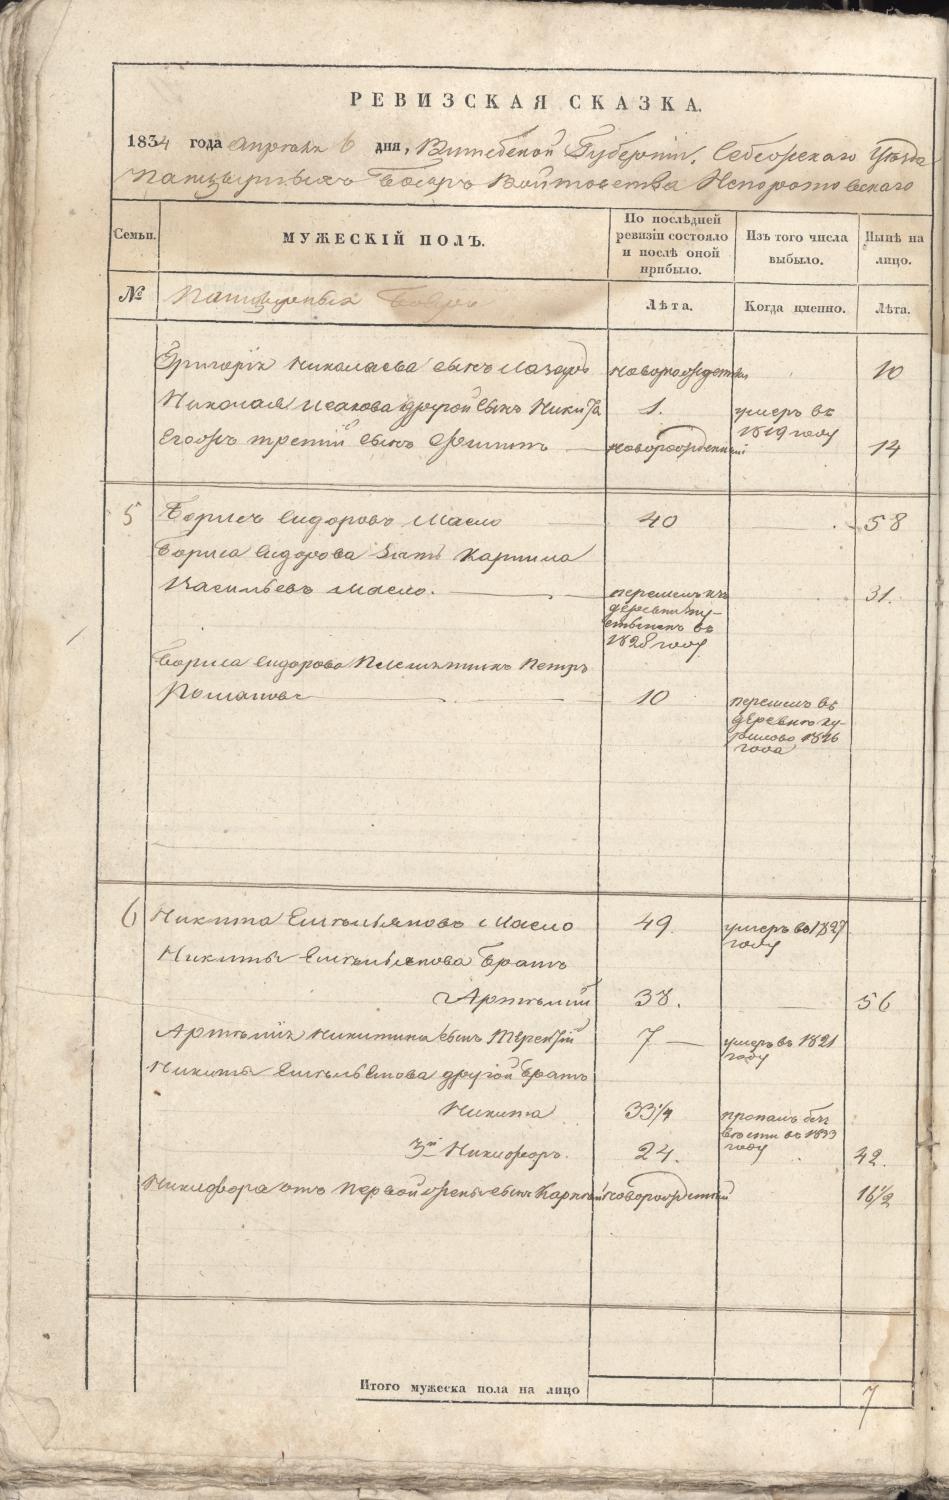 РЕВИЗСКАЯ СКАЗКА.
1834 года апреля 6 дня, Витебской Губернии, Себежскаго Уезда
Панцырныхъ Бояръ Войтовства Непоротовскаго
Семьи.
МУЖЕСКІЙ ПОЛЪ.
По послѣдней ревизіи состояло и послѣ оной прибыло.
Изъ того числа выбыло.
Нынѣ на лицо.
№
Панцырныхъ Бояръ
Лѣта.
Когда именно.
Лѣта.
Григорія Николаева сынъ Лазарь новорожденный 10
Николая Исакова другой сынъ Никита 1. умеръ въ 1819 году
Егоръ третій сынъ Филипъ новорожденный 14
5 Борисъ Сидоровъ Масло 40 58
Бориса Сидорова зять Карпила
Васильевъ Масло. 31.
деревни
въ 1828 году
Бориса Сидорова племянникъ Петръ
Романовъ 10 перешелъ въ
деревню
1826
года
6 Никита Емельяновъ Масло 49 умеръ въ 1827 году
Никиты Емельянова братъ
Артемій 38. 56
Артемія Никитина сынъ Терентій 7 умеръ въ 1821 году
Никиты Емельянова другой братъ
Никита 33 1/4 пропалъ безъ вести въ 1833 году
3й Никифоръ. 24. 42.
Никифора отъ первой жены сынъ новорожденный 16 1/2
Итого мужеска пола на лицо 7